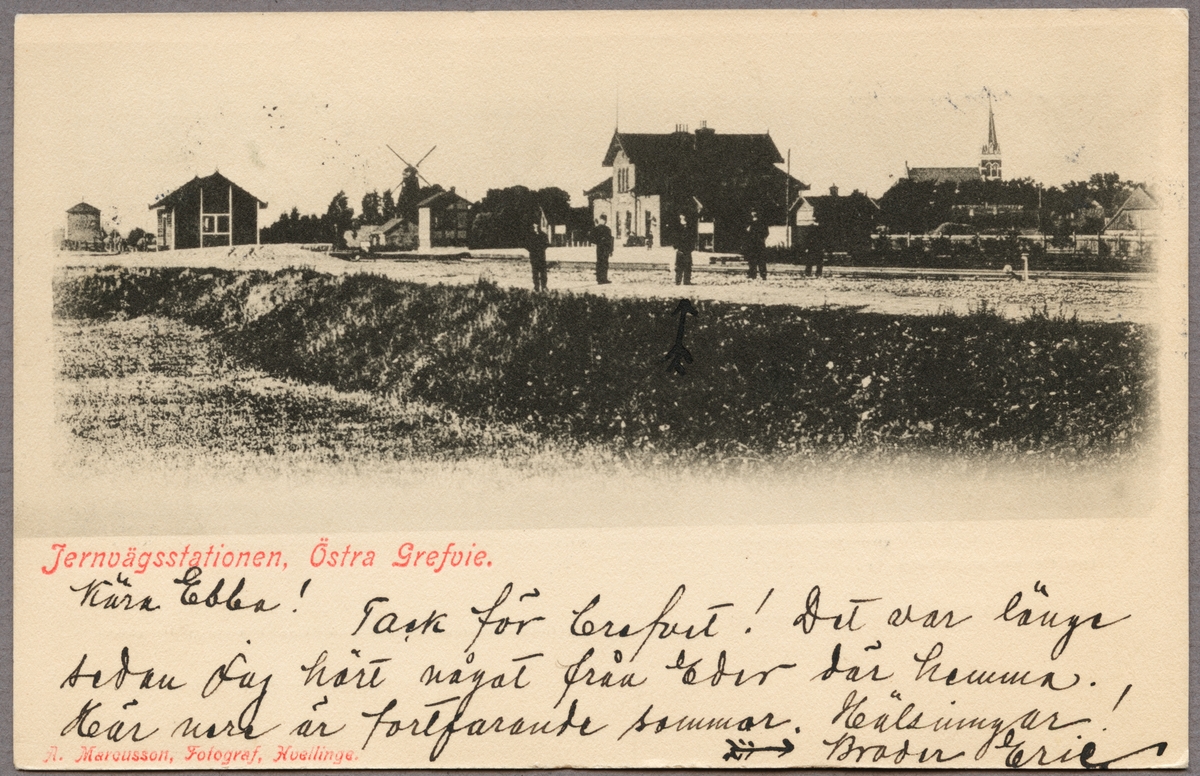 Jernvägsstationen, Östra Grefvie.
Kära Ebba!
Tack för brefvet! Det var länge
sedan jag hört något från Eder där hemma.
Här nere är fortfarande sommar. Hälsningar!
Broder Eric
A. Marcusson, Fotograf, Hvellinge.